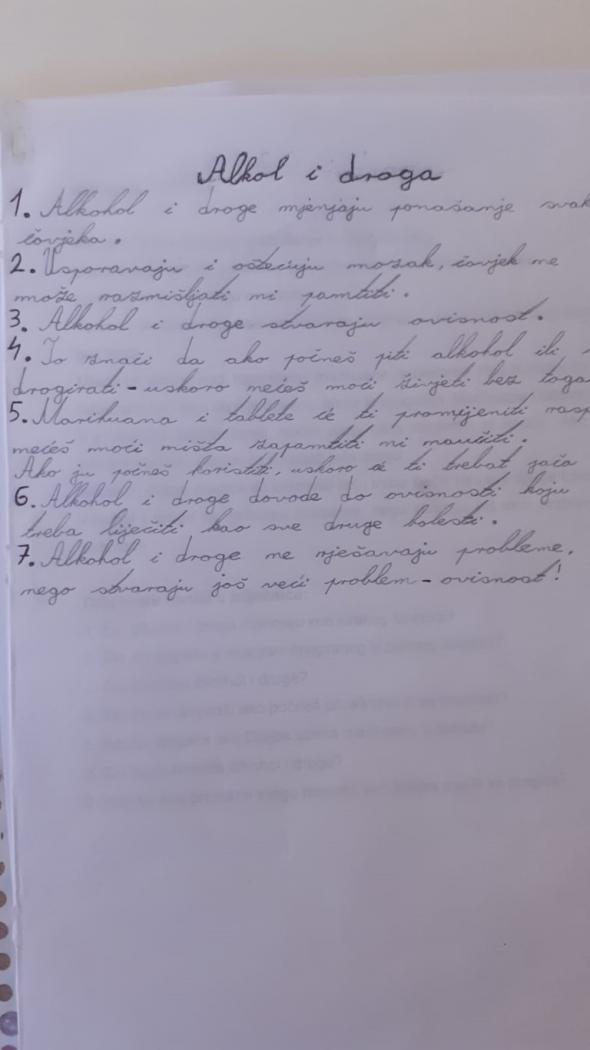 Alkol i droga
1. Alkohol i droge mjenjaju ponašanje svak
čovjeka.
2. Usporavaju i oštećuju mozak, čovjek ne
može razmišljati ni pamtiti.
3. Alkohol i droge stvaraju ovisnost.
4. To znači da ako počneš piti alkohol ili
drogirati - uskoro nećeš moći živjeti bez toga
5. Marihuana i tablete će ti promijeniti rasp
nećeš moći ništa zapamtiti ni naučiti.
Ako ju počneš koristiti, uskoro će ti trebat jača
6. Alkohol i droge dovode do ovisnosti koju
treba liječiti kao sve druge bolesti.
7. Alkohol i droge ne rješavaju probleme,
nego stvaraju još veći problem - ovisnost!